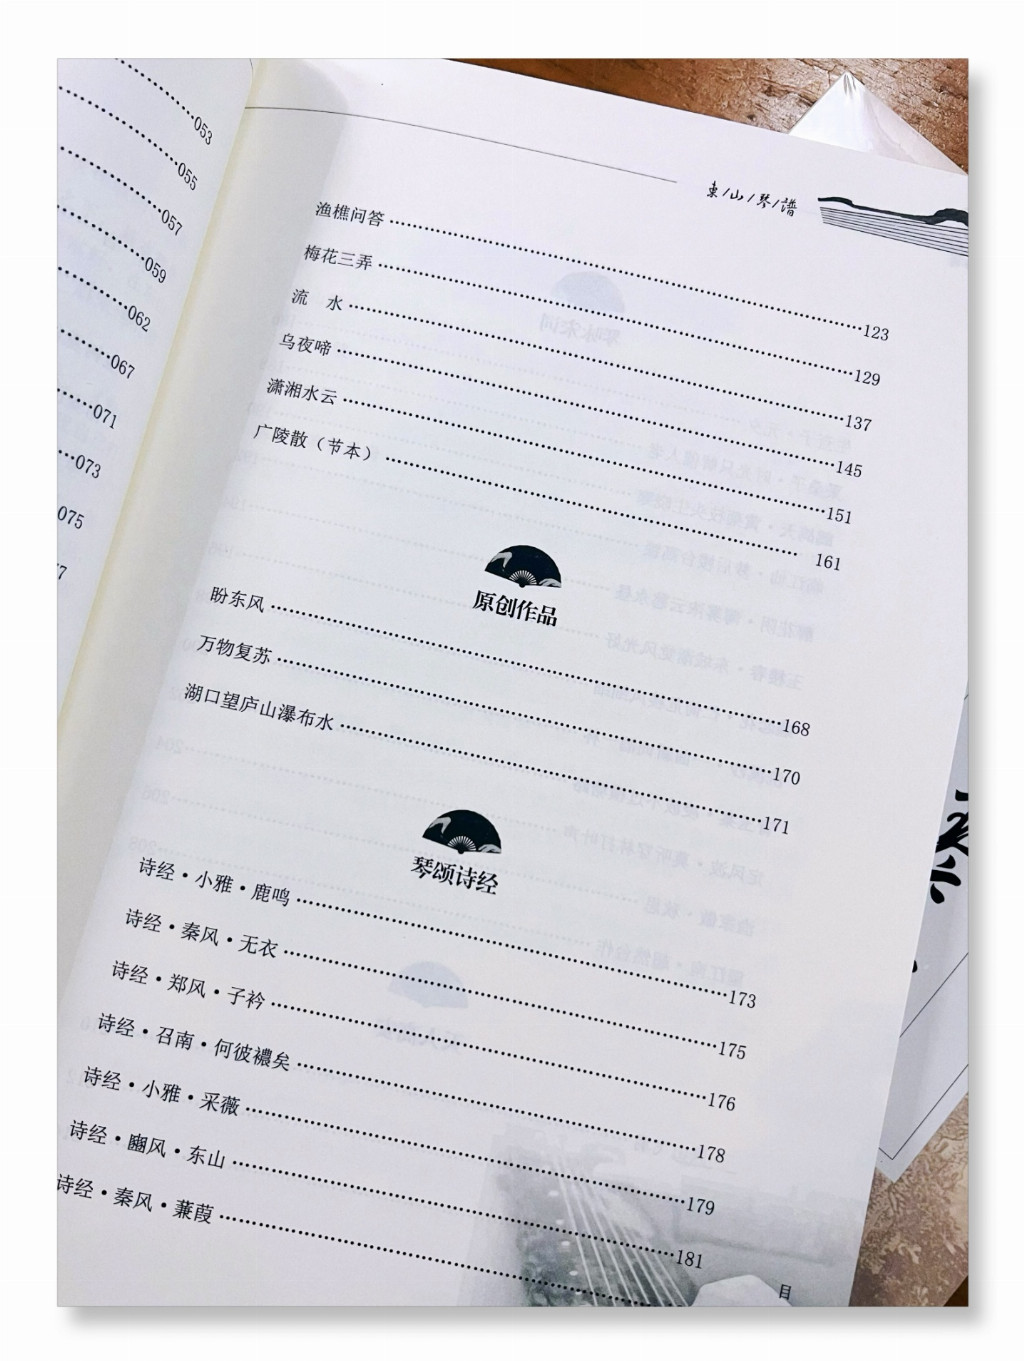 053
055
057
059
062
067
071
073
075
東/山/琴/譜
渔樵问答 123
梅花三弄 129
流 水 137
乌夜啼 145
潇湘水云 151
广陵散（节本） 161
原创作品
盼东风 168
万物复苏 170
湖口望庐山瀑布水 171
琴颂诗经
诗经·小雅·鹿鸣 173
诗经·秦风·无衣 175
诗经·郑风·子衿 176
诗经·召南·何彼襛矣 178
诗经·小雅·采薇 179
诗经·豳风·东山 181
诗经·秦风·蒹葭
目